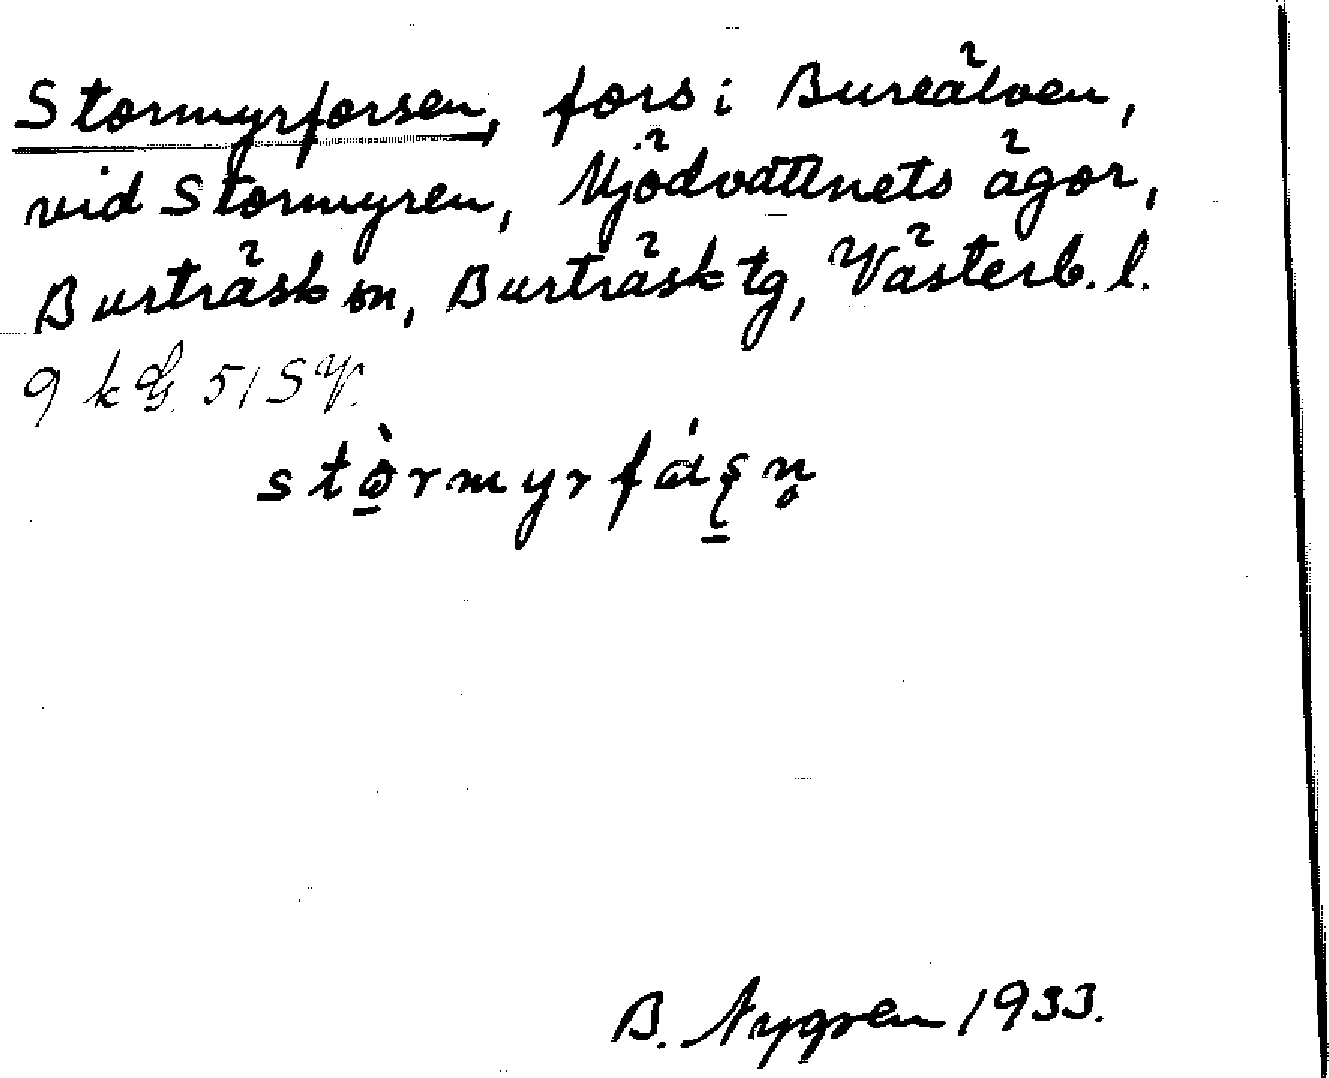 Stormyrforsen, fors i Bureälven,
vid Stormyren, Mjödvattnets ägor,
Burträsk sn, Burträsk tg, Västerb. l.
9 k G. 51 SV.
stòrmyrfásn̥
B. Nygren 1933.